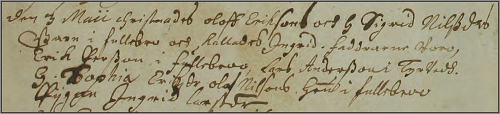 den 3 Maii christnades oloff Erikssons och H Sigrid Nilsdrs
Barn i fullebro och kallades Ingrid. faddrarne voro,
Erik Persson i fullebroo Lars Andersson i
H. Sophia Eriksdr olof Nilsons i fullebroo
Pijgan Ingrid Larsdr